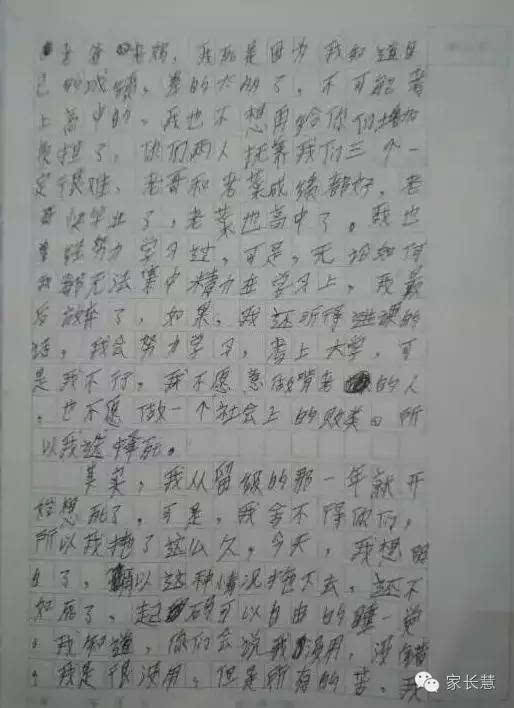 爸爸妈妈，我就是因为我知道自
己的成绩，差的太多了，不可能考
上高中的。我也不想再给你们增加
负担了，你们两人抚养我们三个一
定很难，老哥和老某成绩都好，老
哥快毕业了，老某也高中了。我也
曾经努力学习过，可是，无论如何
我都无法集中精力在学习上，我最
后放弃了，如果，我还听得进课的
话，我会努力学习，考上大学，可
是我不行，我不愿意做啃老的人
，也不愿做一个社会上的败类。所
以我选择死。
某某，我从留级的那一年就开
始想死了，可是，我舍不得你们，
所以我拖了这么久，今天，我想明
白了，以这种情况拖下去，还不
如死了，起码可以自由的睡一觉
。我知道，你们会说我没用，没错
，我是很没用，但是所有的苦，我
家长慧